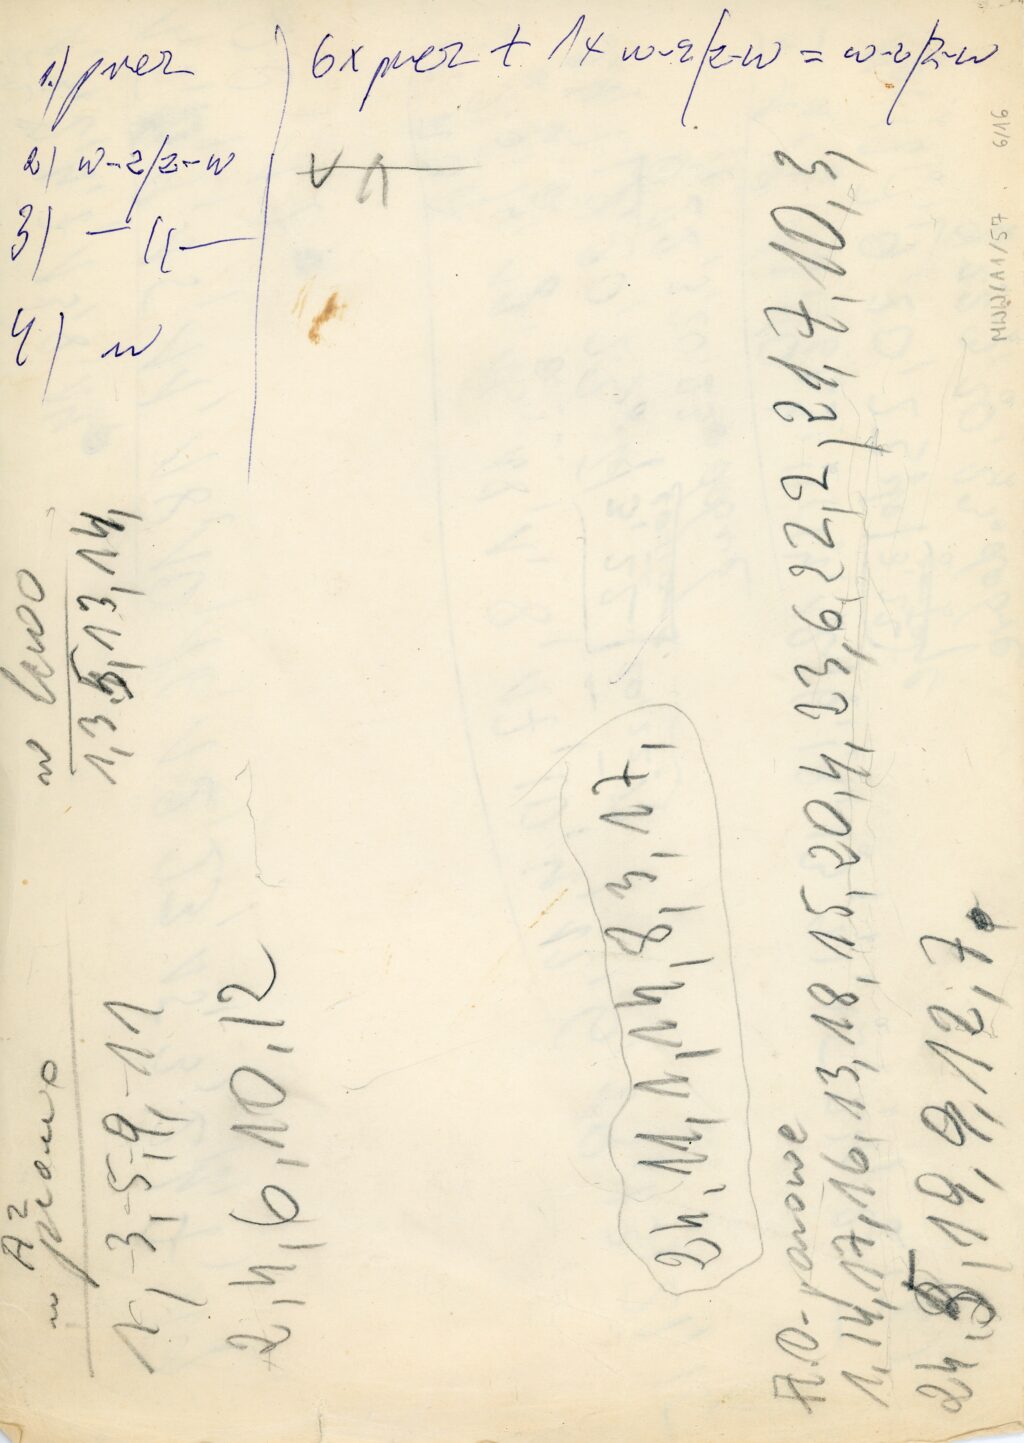 1.) przez
6x przez + 1x w-z/z-w = w-z/z-w
2) w-z/z-w
3) — 〃 —
4) w
w lewo
1, 3, 5, 13, 14,
A²
w prawo
1, 3, 5, 9, 11
2, 4, 6, 10, 12
24, 11, 1, 14, 8, 3, 17,
A.O - pionowe
1, 14, 17, 16, 13, 18, 15, 20, 4, 23, 6, 22, 2, 21, 7, 10, 3,
24, 5, 19, 9, 12, 7,